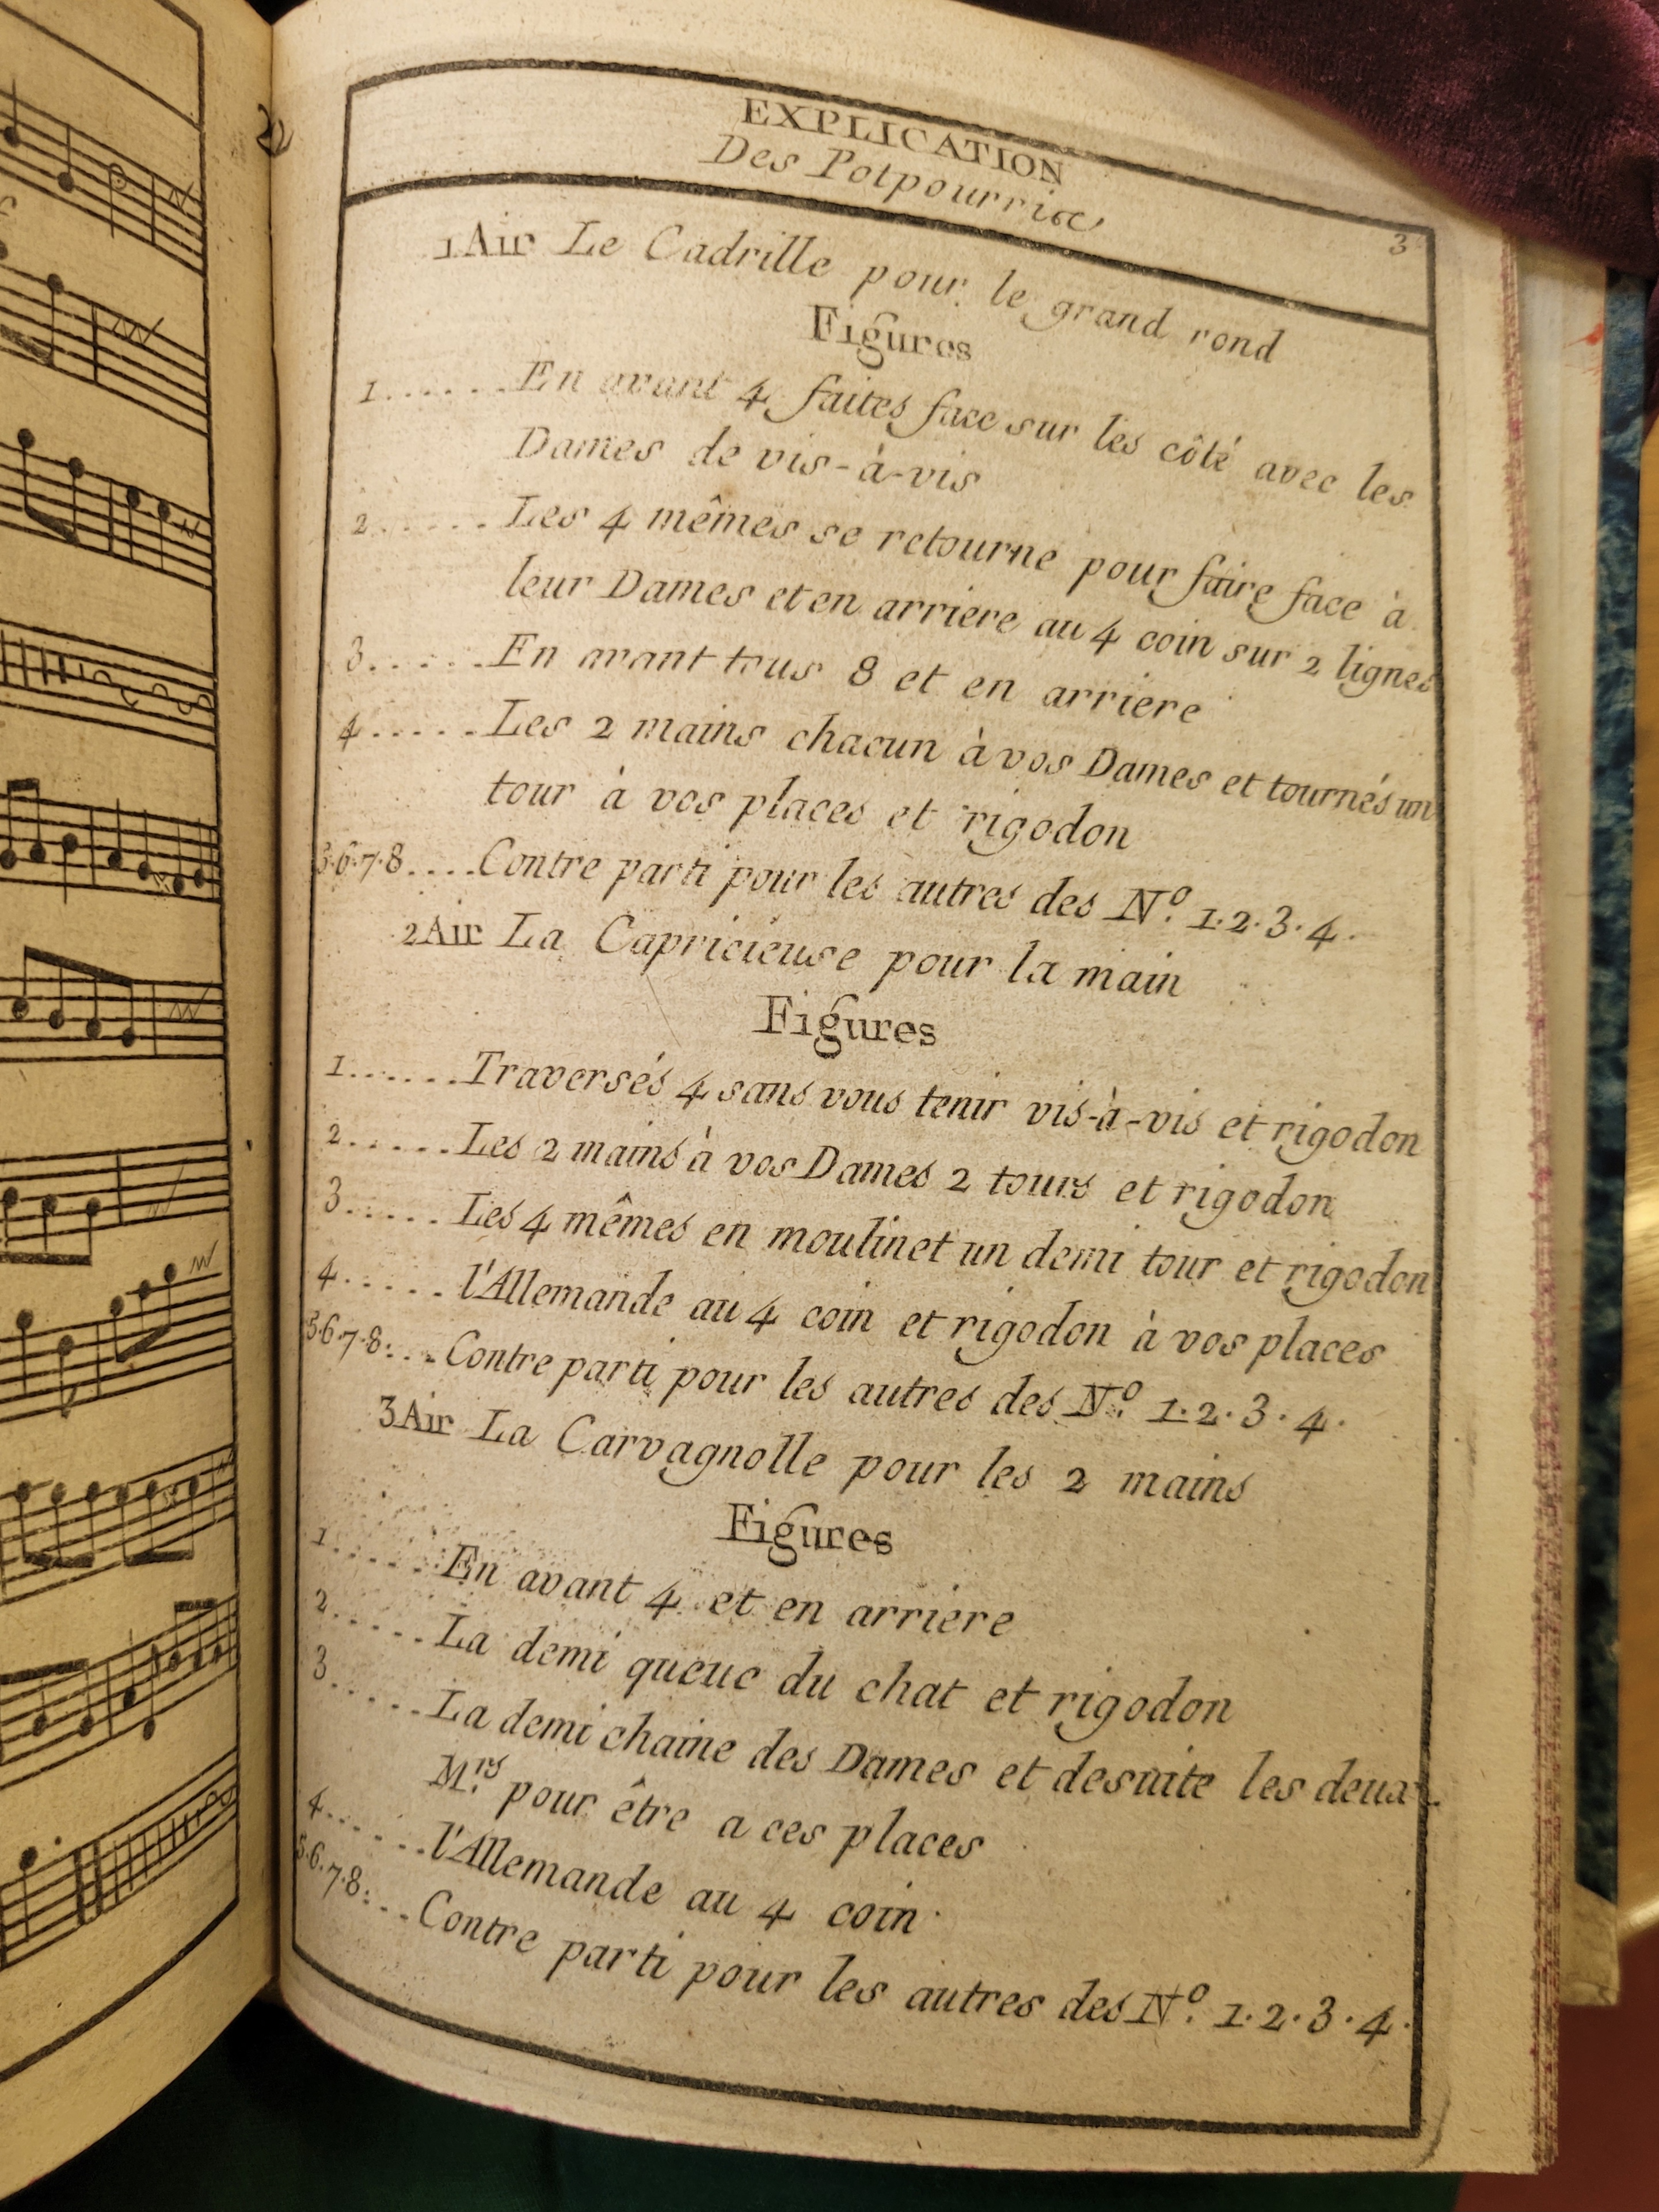 EXPLICATION
Des Potpourrix
3
1 Air Le Cadrille pour le grand rond
Figures
1...... En avant 4 faites face sur les côté avec les
Dames de vis-à-vis
2...... Les 4 mêmes se retourne pour faire face à
leur Dames et en arriere au 4 coin sur 2 lignes
3...... En avant tous 8 et en arriere
4...... Les 2 mains chacun à vos Dames et tournés un
tour à vos places et rigodon
5.6.7.8.... Contre parti pour les autres des N.º 1.2.3.4.
2 Air La Capricieuse pour la main
Figures
1...... Traversés 4 sans vous tenir vis-à-vis et rigodon
2...... Les 2 mains à vos Dames 2 tours et rigodon
3...... Les 4 mêmes en moulinet un demi tour et rigodon
4...... l'Allemande au 4 coin et rigodon à vos places
5.6.7.8:... Contre parti pour les autres des N.º 1.2.3.4.
3 Air La Carvagnolle pour les 2 mains
Figures
1...... En avant 4 et en arriere
2...... La demi queue du chat et rigodon
3...... La demi chaine des Dames et desuite les deux
M.rs pour être a ces places
4...... l'Allemande au 4 coin
5.6.7.8:... Contre parti pour les autres des N.º 1.2.3.4.